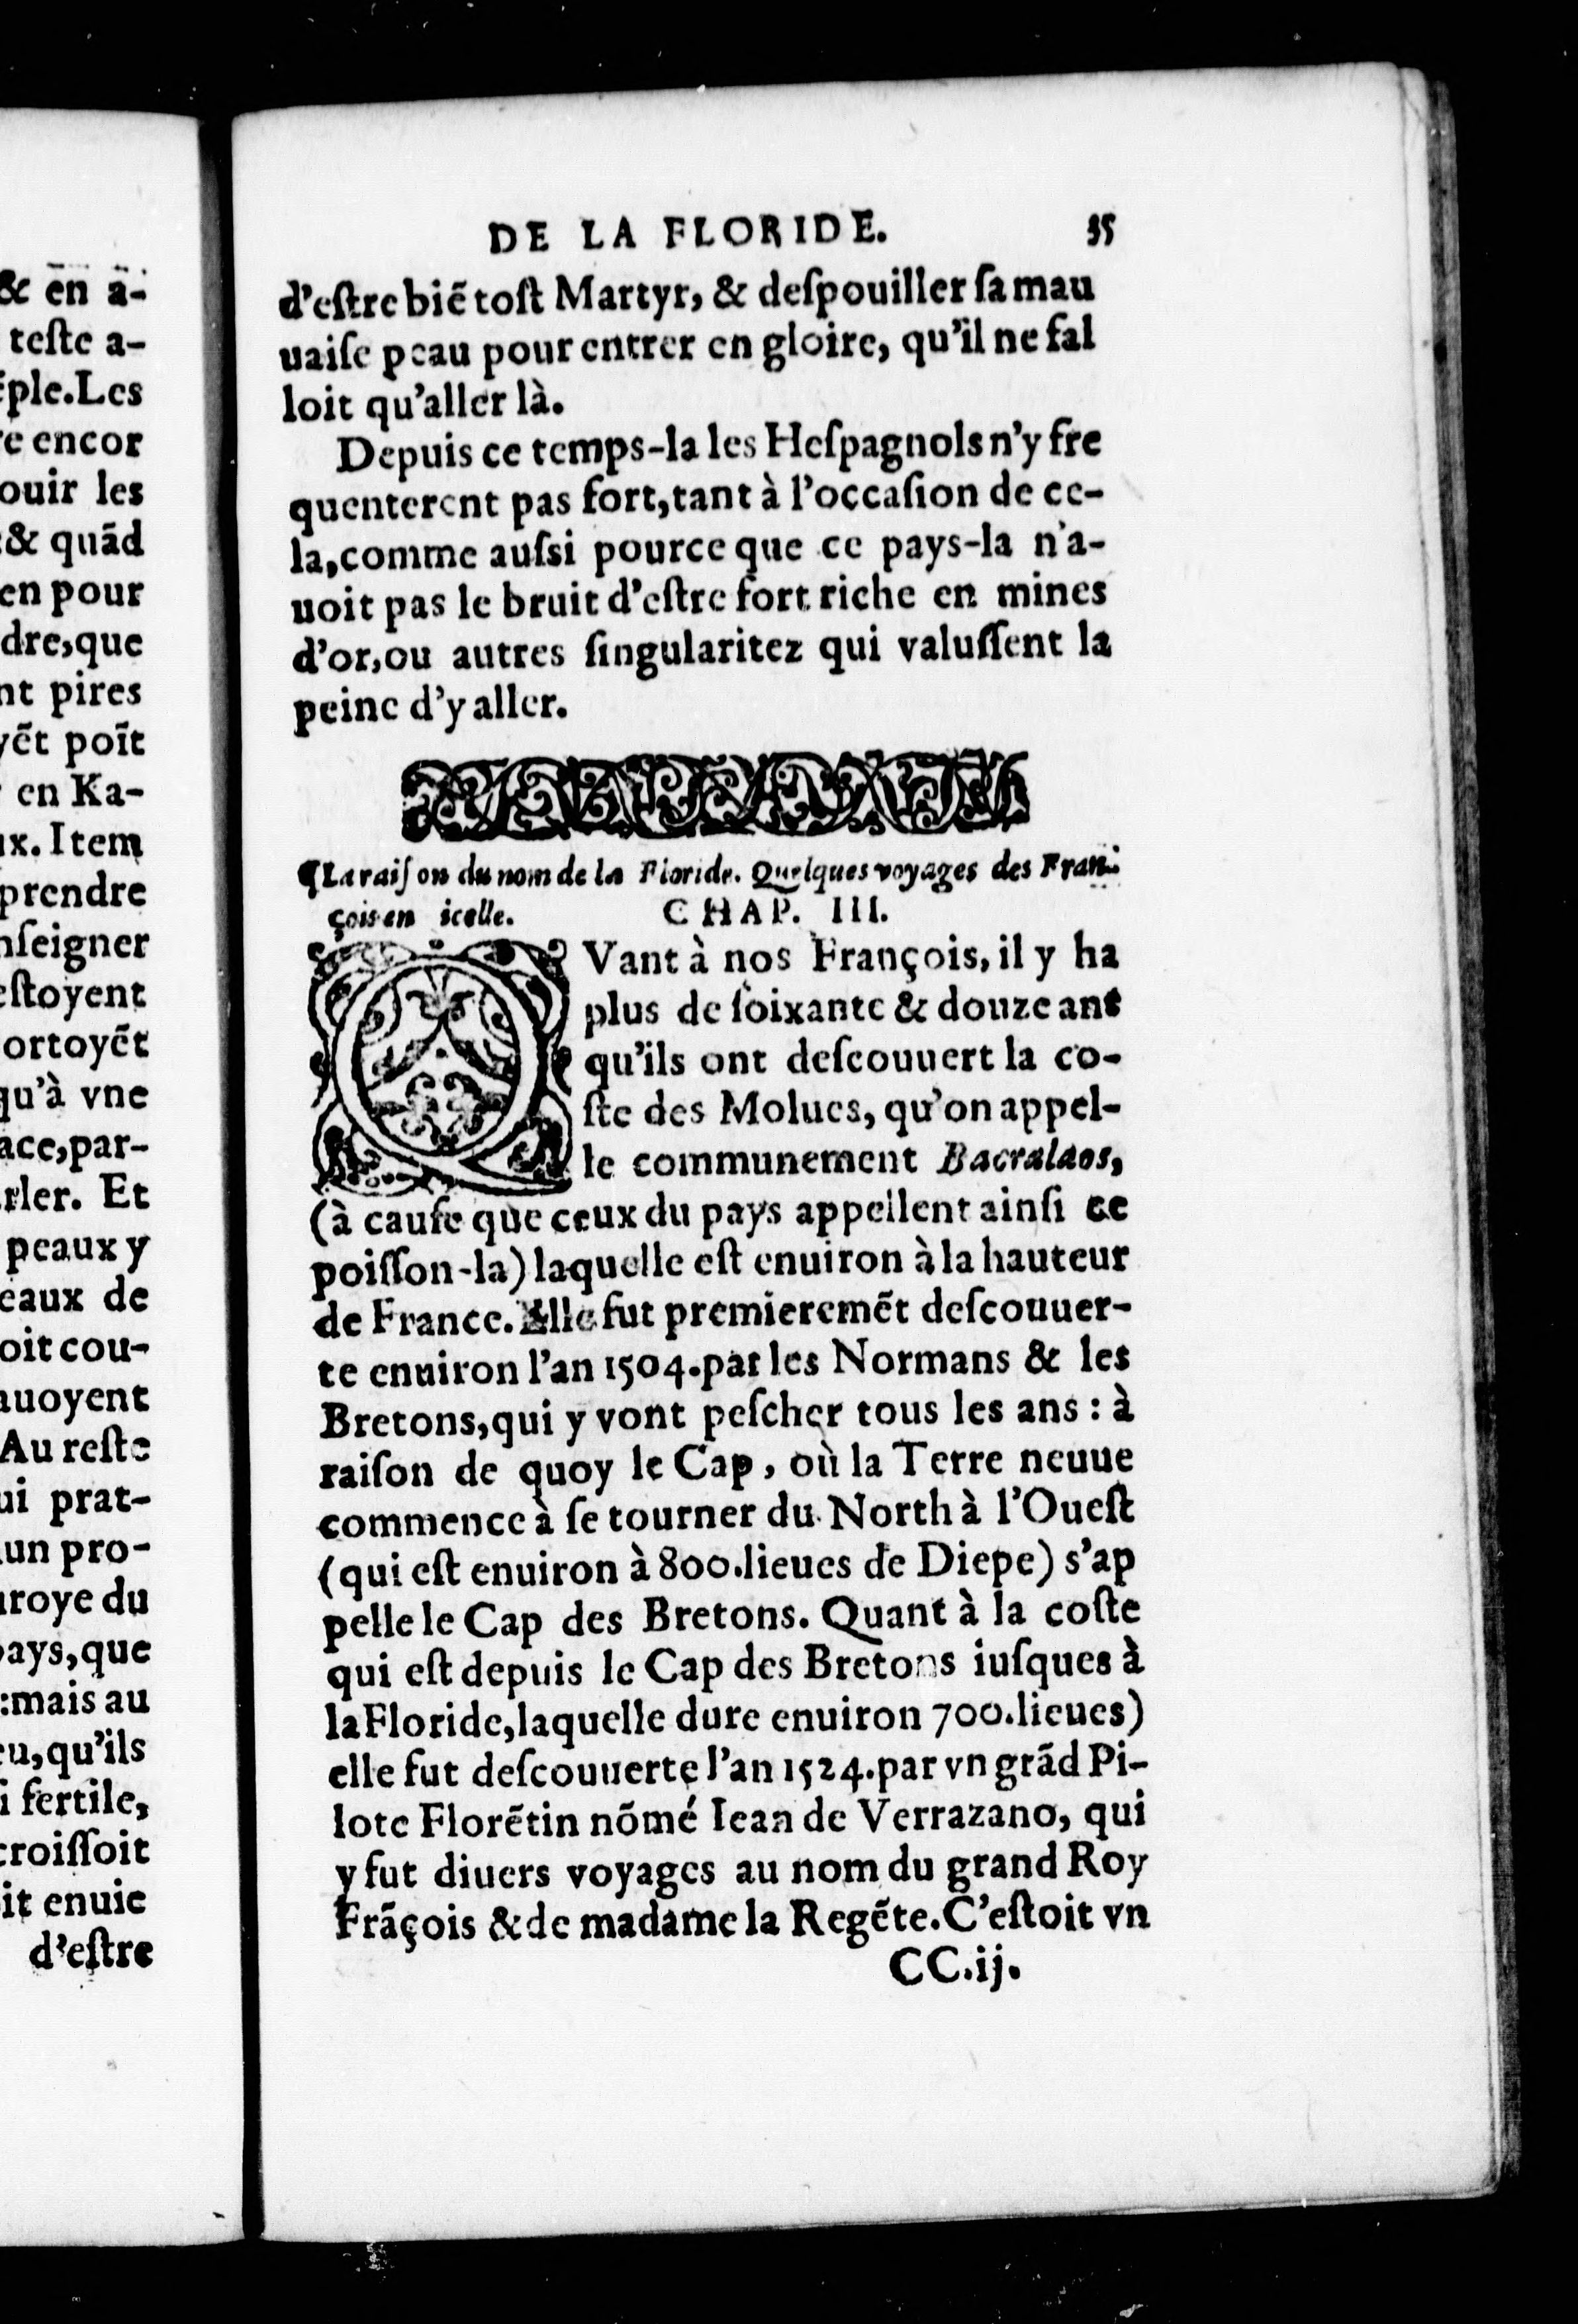 & en a-
teste a-
ẽple.Les
encor
ouir les
& quãd
en pour
dre,que
pires
poĩt
en Ka-
Item
prendre
estoyent
qu'à vne
par-
Et
peaux y
de
cou-
Au reste
prat-
pro-
du
que
:mais au
qu'ils
fertile,
enuie
d'estre
DE LA FLORIDE. 35
d'eſtre biẽ toſt Martyr, & deſpouiller ſa mau
uaiſe peau pour entrer en gloire, qu'il ne fal
loit qu'aller là.
Depuis ce temps-la les Heſpagnols n'y fre
quenterent pas fort,tant à l'occaſion de ce-
la,comme auſsi pource que ce pays-la n'a-
uoit pas le bruit d'eſtre fort riche en mines
d'or,ou autres ſingularitez qui valuſſent la
peine d'y aller.
¶La raiſon du nom de la Floride. Quelques voyages des Fran-
çois en icelle. CHAP. III.
QVant à nos François, il y ha
plus de ſoixante & douze ans
qu'ils ont deſcouuert la co-
ſte des Molues, qu'on appel-
le communement Bacralaos,
(à cauſe que ceux du pays appellent ainſi ce
poiſſon-la) laquelle eſt enuiron à la hauteur
de France. Elle fut premieremẽt deſcouuer-
te enuiron l'an 1504.par les Normans & les
Bretons,qui y vont peſcher tous les ans : à
raiſon de quoy le Cap, où la Terre neuue
commence à ſe tourner du North à l'Oueſt
(qui eſt enuiron à 800.lieues de Diepe) s'ap
pelle le Cap des Bretons. Quant à la coſte
qui eſt depuis le Cap des Bretons iuſques à
la Floride,laquelle dure enuiron 700.lieues)
elle fut deſcouuerte l'an 1524.par vn grãd Pi-
lote Florẽtin nõmé Iean de Verrazano, qui
y fut diuers voyages au nom du grand Roy
Frãçois & de madame la Regẽte. C'eſtoit vn
CC.ij.